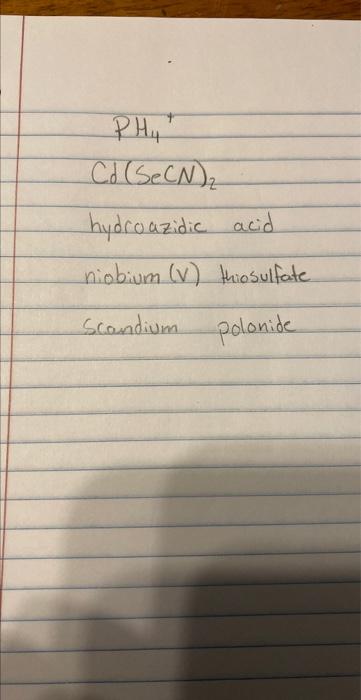 PH₄⁺
Cd(SeCN)₂
hydroazidic acid
niobium (V) thiosulfate
Scandium polonide